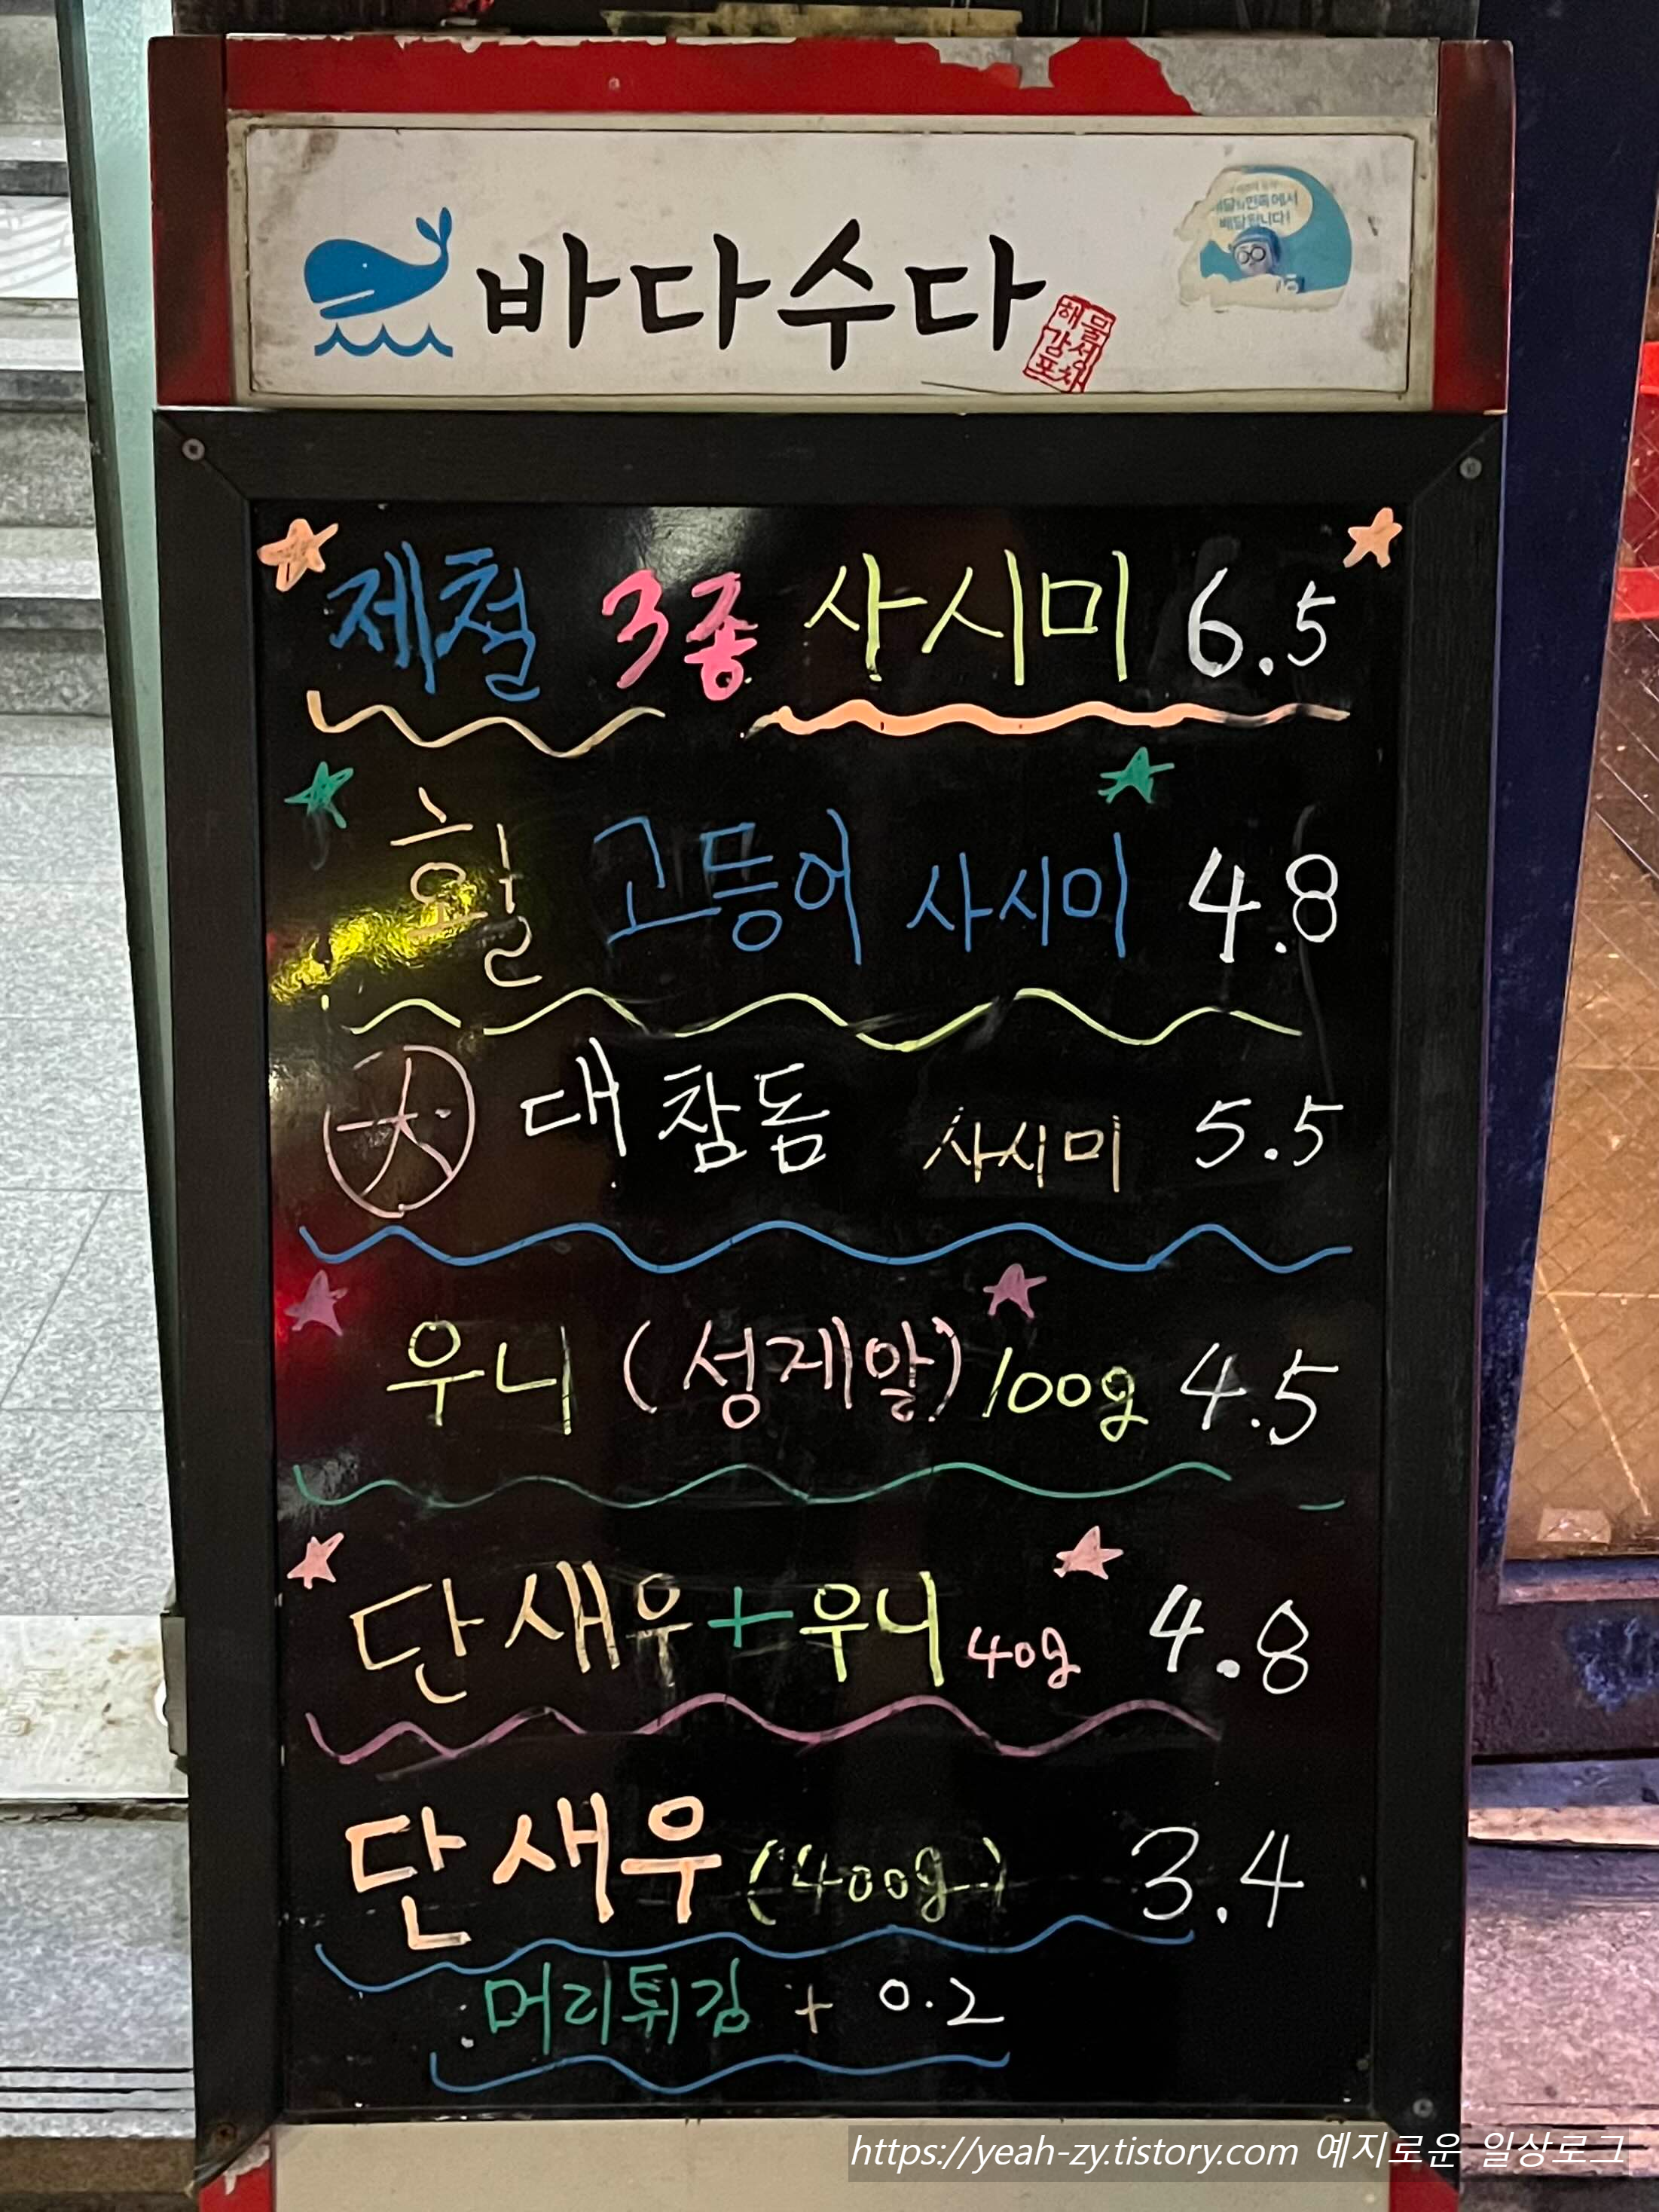 바다수다
해물성찬
감포
배달의민족에서
배달됩니다!
제철 3종 사시미 6.5
활 고등어 사시미 4.8
大 대참돔 사시미 5.5
우니 (성게알) 100g 4.5
단새우+우니 40g 4.8
단새우 (400g) 3.4
머리튀김 + 0.2
https://yeah-zy.tistory.com 예지로운 일상로그